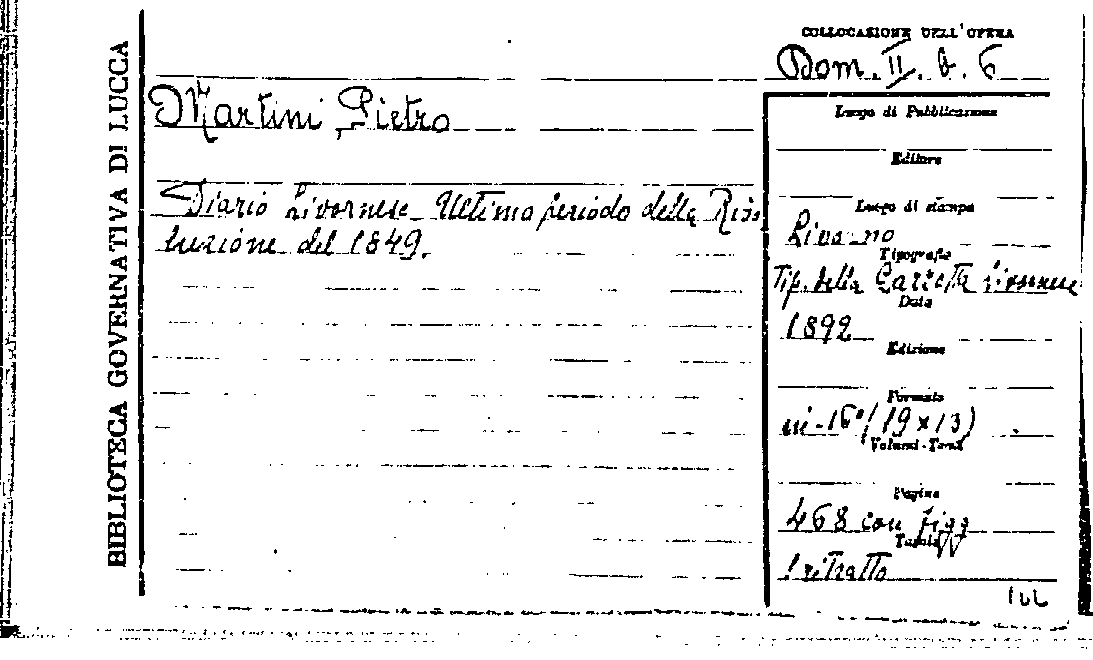 BIBLIOTECA GOVERNATIVA DI LUCCA
COLLOCAZIONE DELL'OPERA
Dom. II. b. 6
Martini Pietro
Diario Livornese_ Ultimo periodo della Rivo
luzione del 1849.
Luogo di Pubblicazione
Editore
Luogo di stampa
Livorno
Tipografia
Tip. della Gazzetta livornese
Data
1892
Edizione
Formato
in-16° (19x13)
Volumi-Tomi
Pagine
468 con figg
Tavole
1 ritratto